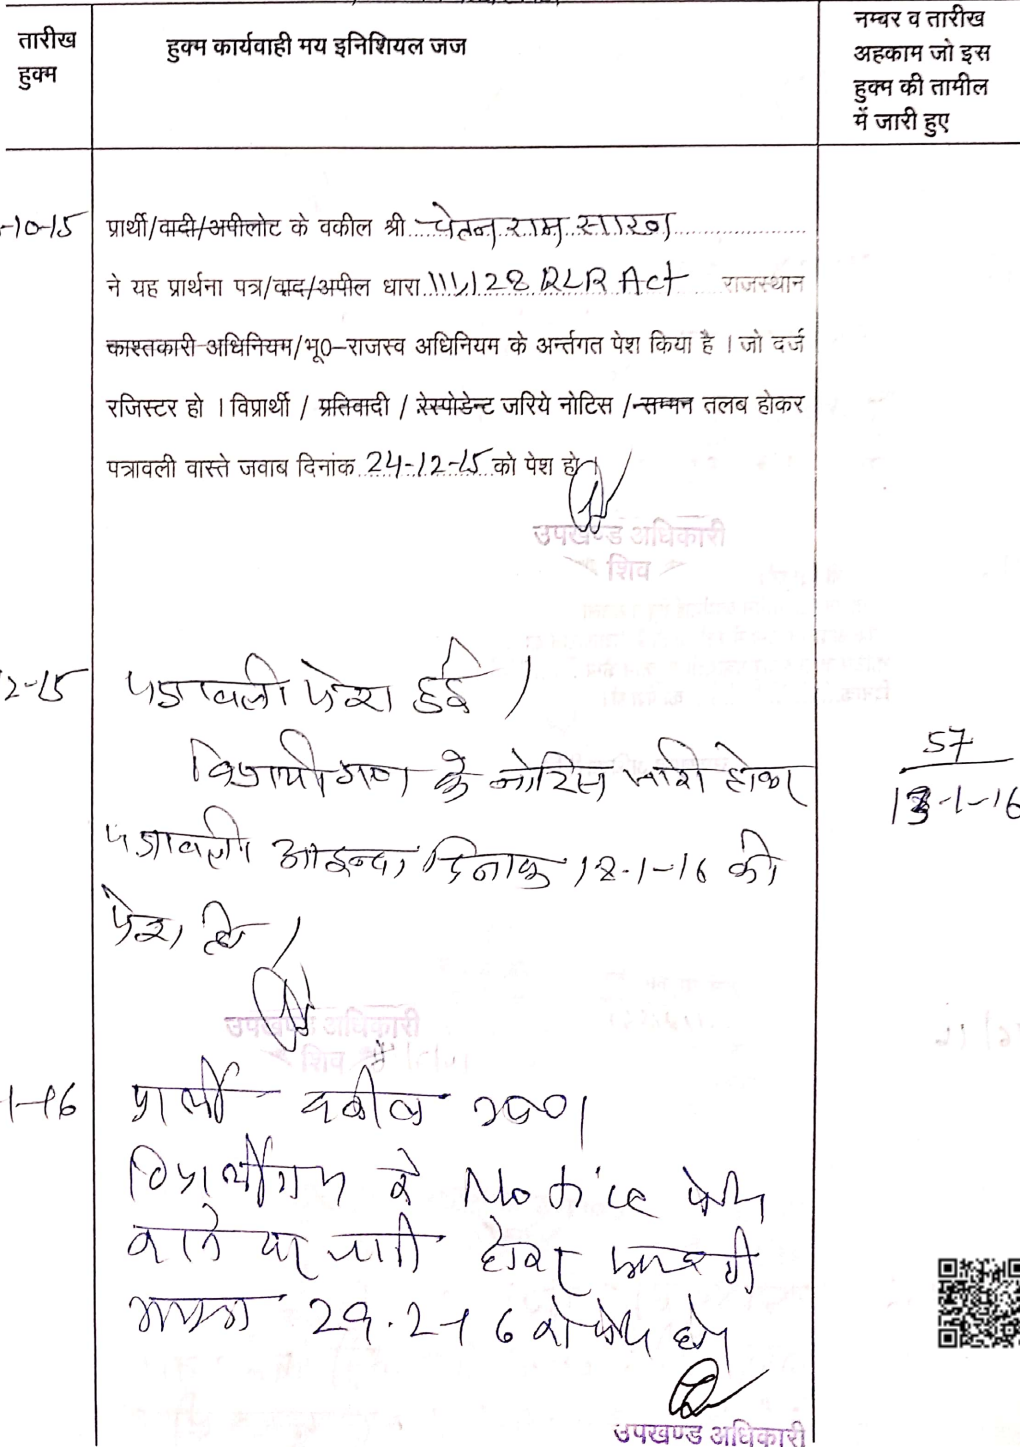 तारीख
हुक्म
हुक्म कार्यवाही मय इनिशियल जज
नम्बर व तारीख
अहकाम जो इस
हुक्म की तामील
में जारी हुए
-10-15 प्रार्थी/वादी/अपीलोट के वकील श्री चेतन राम सारण
ने यह प्रार्थना पत्र/वाद/अपील धारा 111,128 RLR Act राजस्थान
काश्तकारी अधिनियम/भू0-राजस्व अधिनियम के अर्न्तगत पेश किया है । जो दर्ज
रजिस्टर हो । विप्रार्थी / प्रतिवादी / रेस्पोडेन्ट जरिये नोटिस / सम्मन तलब होकर
पत्रावली वास्ते जवाब दिनांक 24-12-15 को पेश हो ।
उपखण्ड अधिकारी
शिव
2-15 पत्रावली पेश हुई ।
विप्रार्थीगण के नोटिस जारी होकर
57
13-1-16
पत्रावली आइन्दा दिनांक 18-1-16 को
पेश हो ।
उपखण्ड अधिकारी
शिव
-1-16 प्रार्थी वकील उप0 ।
विप्रार्थीगण के Notice पेश
करने पर जारी होकर
29.2-16 को पेश हो
उपखण्ड अधिकारी